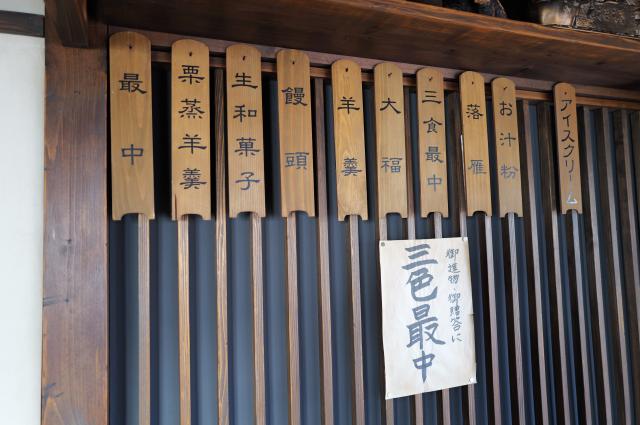 アイスクリーム
お汁粉
落雁
三食最中
大福
羊羹
饅頭
生和菓子
栗蒸羊羹
最中
御進物・御贈答に
三色最中